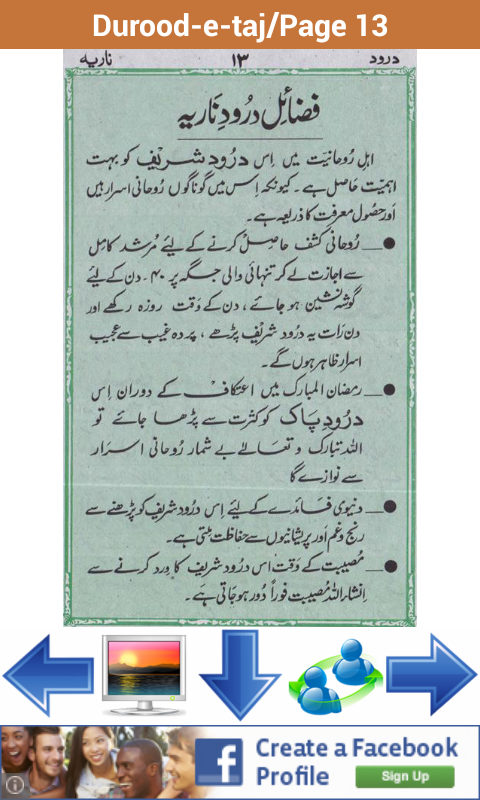 Durood-e-taj/Page 13
درود ۱۳ ناریہ
فضائل درودِ ناریہ
اہل رُوحانیّت میں اِس درود شریف کو بہت
اہمیّت حاصل ہے ۔ کیونکہ اِس میں گوناگوں رُوحانی اسرار ہیں
اور حصُول معرفت کا ذریعہ ہے۔
● ــ رُوحانی کشف حاصل کرنے کے لئے مُرشد کامِل
سے اجازت لے کر تنہائی والی جگہ پر ۴۰ ۔ دن کے لئے
گوشہ نشین ہو جائے ، دن کے وقت روزہ رکھے اور
دن رات یہ درود شریف پڑھے ، پردہ غیب سے عجیب
اسرار ظاہر ہوں گے۔
● ــ رمضان المبارک میں اعتکاف کے دوران اِس
درودِ پاک کو کثرت سے پڑھا جائے تو
اللہ تبارک و تعالےٰ بے شمار رُوحانی اسرار
سے نوازے گا
● ــ دنیوی فائدے کے لئے اِس درود شریف کو پڑھنے سے
رنج و غم اور پریشانیوں سے حفاظت ملتی ہے۔
● ــ مُصیبت کے وقت اس درود شریف کا وِرد کرنے سے
اِنشاء اللہ مُصیبت فوراً دُور ہو جاتی ہے ۔
Create a Facebook
Profile
Sign Up